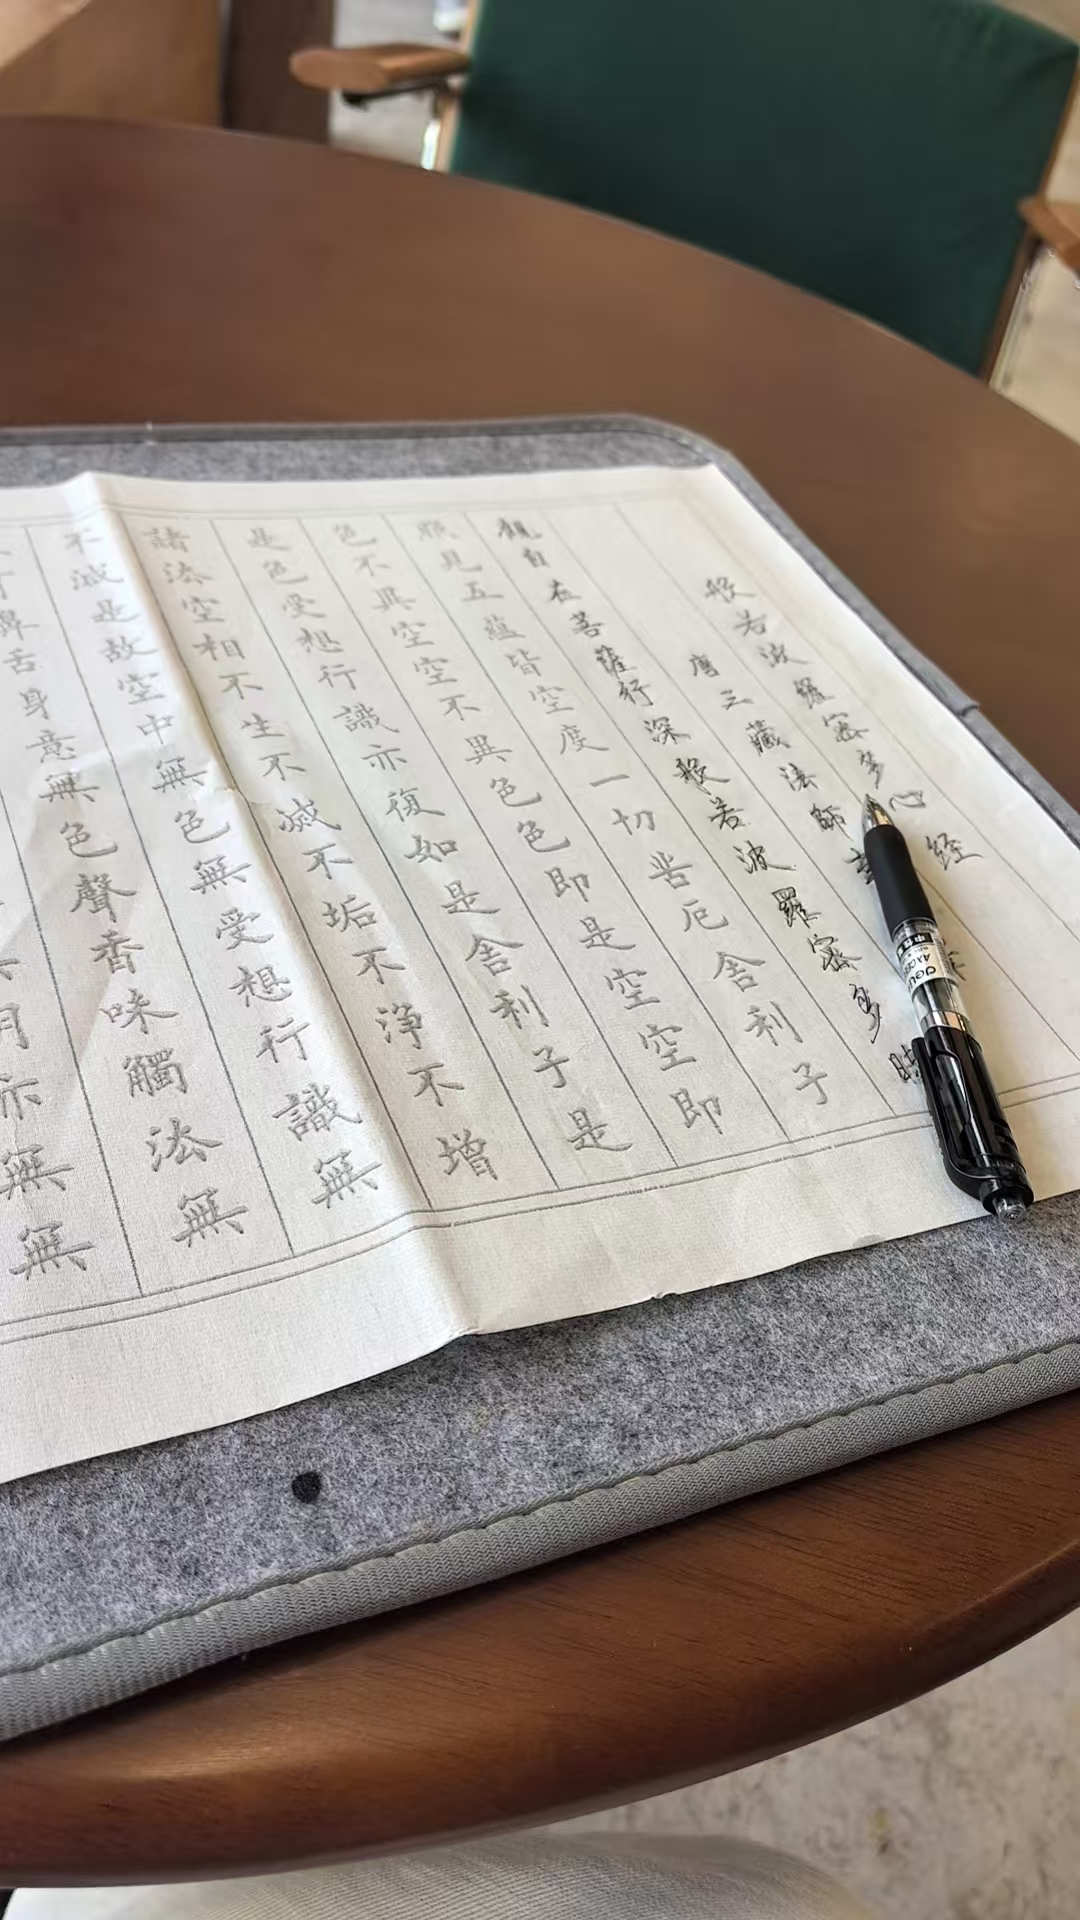 般若波羅密多心经
唐三藏法師
觀自在菩薩行深般若波羅密多時
照見五蘊皆空度一切苦厄舍利子
色不異空空不異色色即是空空即
是色受想行識亦復如是舍利子是
諸法空相不生不滅不垢不淨不增
不減是故空中無色無受想行識無
鼻舌身意無色聲香味觸法無
亦無無